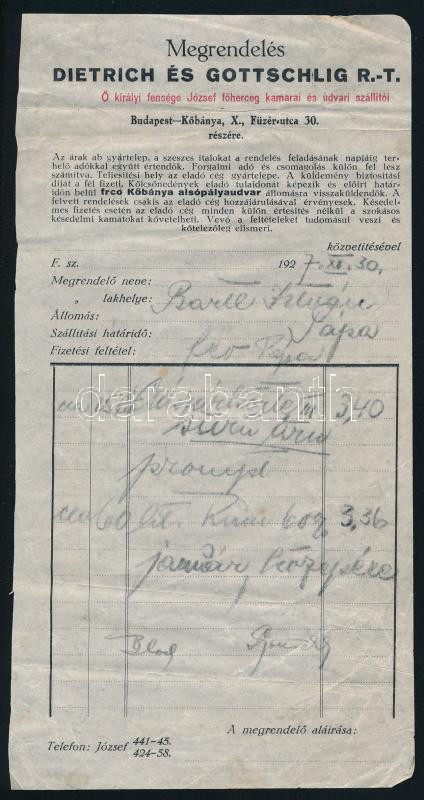 Megrendelés
DIETRICH ÉS GOTTSCHLIG R.-T.
Ő királyi fensége József főherceg kamarai és udvari szállítói
Budapest—Kőbánya, X., Füzér-utca 30.
részére.
Az árak ab gyártelep, a szeszes italokat a rendelés feladásának napjáig ter-
helő adókkal együtt értendők. Forgalmi adó és csomagolás külön fel lesz
számítva. Teljesítési hely az eladó cég gyártelepe. A küldemény biztosítási
díját a fél fizeti. Kölcsönedények eladó tulajdonát képezik és előírt határ-
időn belül frcó Kőbánya alsópályaudvar állomásra visszaküldendők. A
felvett rendelések csakis az eladó cég hozzájárulásával érvényesek. Késedel-
mes fizetés esetén az eladó cég minden külön értesítés nélkül a szokásos
késedelmi kamatokat követelheti. Vevő a feltételeket tudomásul veszi és
kötelezőleg elismeri.
közvetítésével
F. sz. 1927. XI. 30.
Megrendelő neve:
„ lakhelye:
Állomás: Pápa
Szállítási határidő:
Fizetési feltétel: fco Pápa
3,40
prompt
60 lit. Rum 60% 3,36
január közepére
A megrendelő aláírása:
Telefon: József 441-45.
424-58.
darabanth